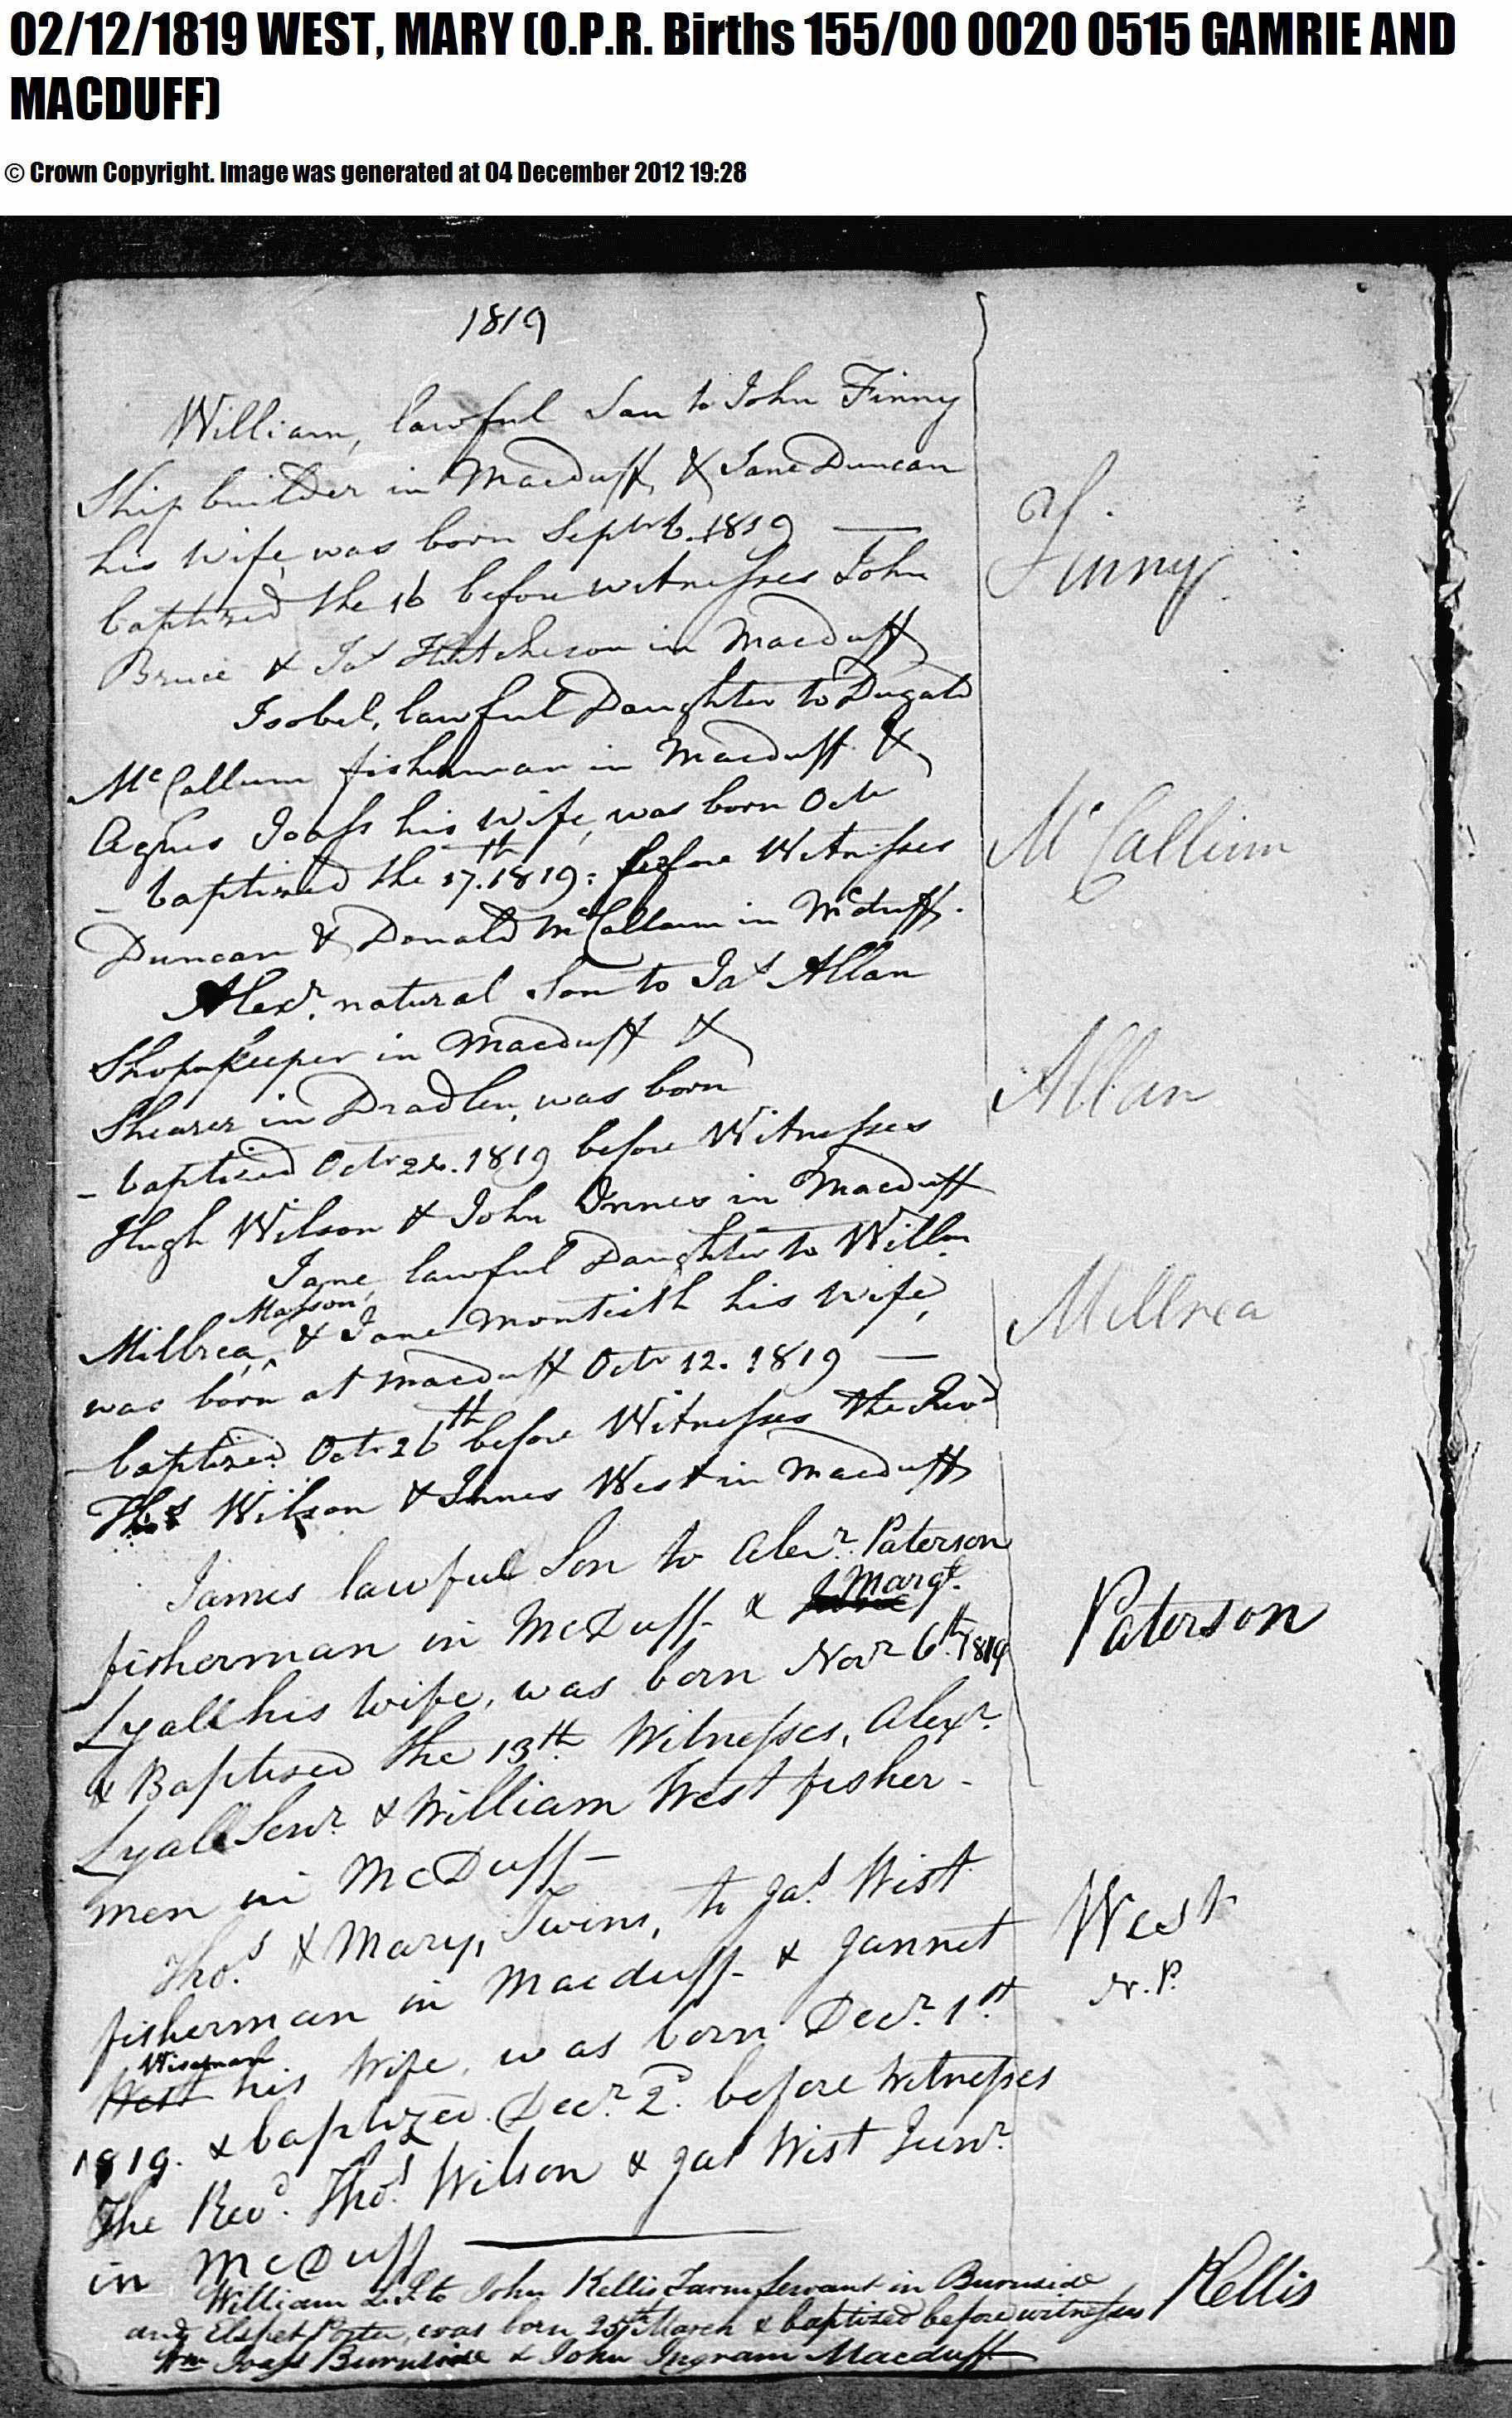 02/12/1819 WEST, MARY (O.P.R. Births 155/00 0020 0515 GAMRIE AND
MACDUFF)
© Crown Copyright. Image was generated at 04 December 2012 19:28
1819
William, lawful Son to John Finny
Ship builder in Macduff, & Jane Duncan
his wife, was born Septr 6. 1819 —
baptized the 16 before witnesses John
Bruce & Jas Hutcheson in Macduff
Finny
Isobel, lawful Daughter to Dugald
McCallum fisherman in Macduff &
Agnes Joass his wife, was born Octr
– baptized the 17.th 1819: before Witnesses
Duncan & Donald McCallum in Mcduff.
McCallum
Alexr. natural Son to Jas Allan
Shopkeeper in Macduff &
Shearer in Dradlen, was born
– baptized Octr 24. 1819 before Witnesses
Hugh Wilson & John Innes in Macduff
Allan
Jane, lawful Daughter to Willm
Masson
Millrea, & Jane Monteith his wife,
was born at Macduff Octr 12. 1819 —
– baptized Octr 26th before Witnesses the Revd
Thos Wilson & Innes West in Macduff
Millrea
James lawful Son to Alexr. Paterson
fisherman in McDuff & Margt.
Lyall his wife, was born Novr 6th. 1819
& Baptised the 13th. Witnesses, Alexr.
Lyall Senr. & William West fisher-
men in McDuff –
Paterson
Thos. & Mary, Twins, to Jas. West
fisherman in Macduff & Jannet
Wiseman
West his wife, was born Decr. 1st
1819. & baptized Decr. 2d. before Witnesses
The Revd. Thos. Wilson & Jas West Junr.
in McDuff
West
N.P.
William L.S. to John Kellis Farm Servant in Burnside
and Elspet Porter, was born 25th March & baptized before witnesses
Wm Joass Burnside & John Ingram Macduff
Kellis